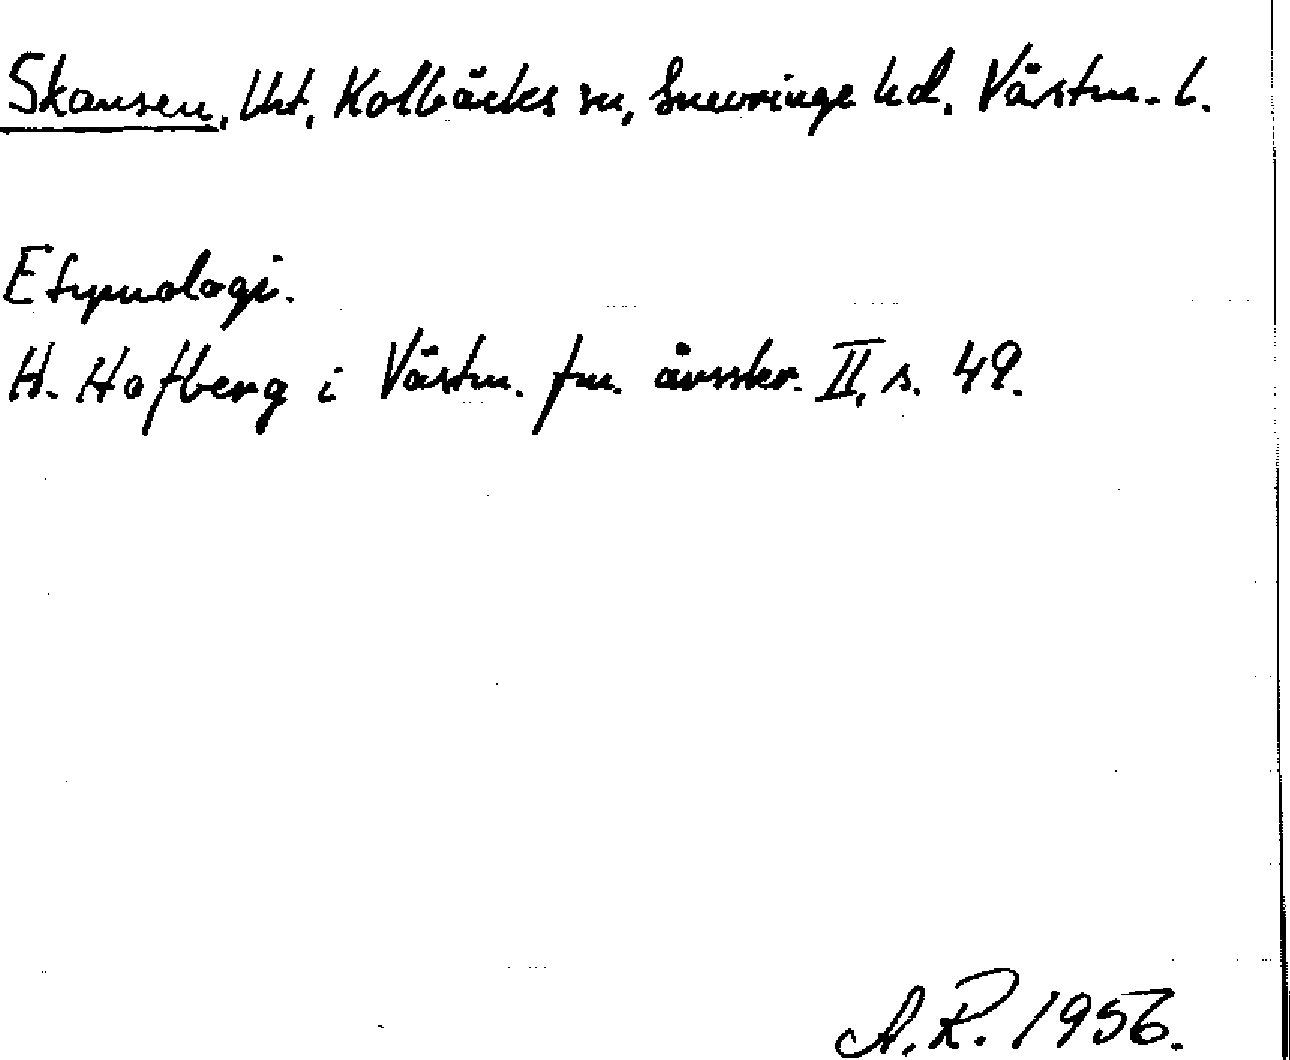 Skansen, Kolbäcks sn, Snevringe hd. Västm. l.
Etymologi.
H. Hofberg i Västm. fm. årsskr. II, s. 49.
A.R. 1956.